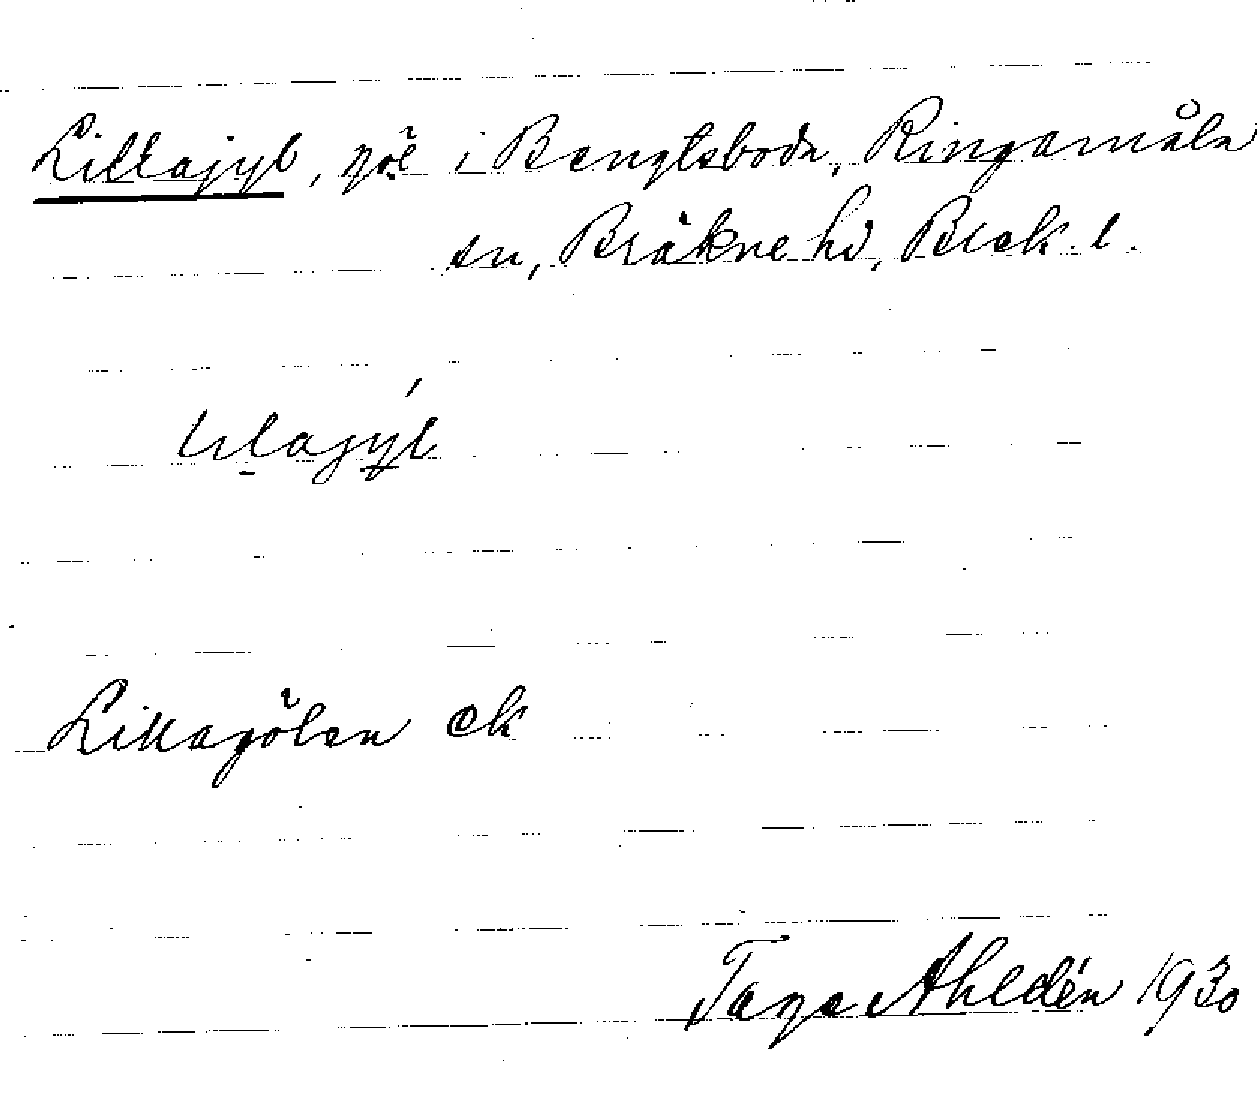 Lillajyl, göl i Bengtsboda, Ringamåla
sn, Bräkne hd, Blek. l.
Lillagölen ek
Tage Ahldén 1930